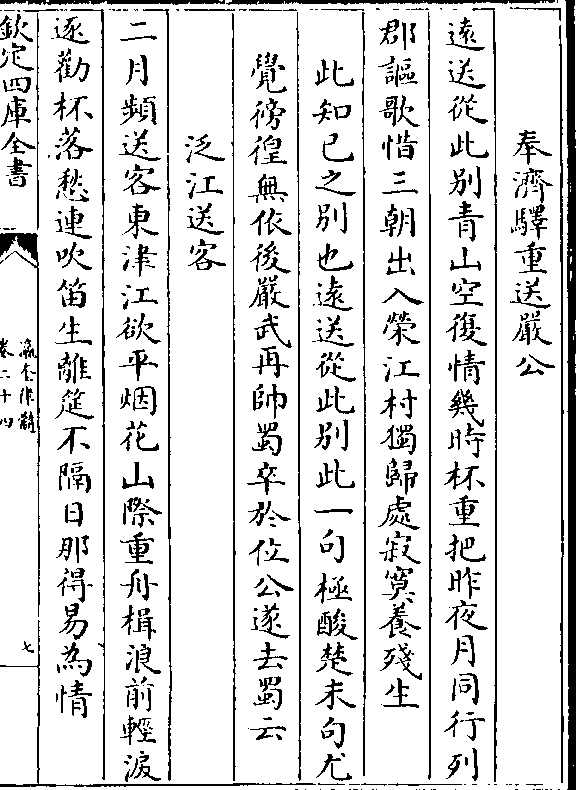 奉濟驛重送嚴公
遠送從此別青山空復情幾時杯重把昨夜月同行列
郡謳歌惜三朝出入榮江村獨歸處寂寞養殘生
此知已之別也遠送從此別此一句極酸楚末句尤
覺徬徨無依後嚴武再帥蜀卒於位公遂去蜀云
泛江送客
二月頻送客東津江欲平烟花山際重舟楫浪前輕淚
逐勸杯落愁連吹笛生離筵不隔日那得易為情
欽定四庫全書
瀛奎律髓
卷二十四
七